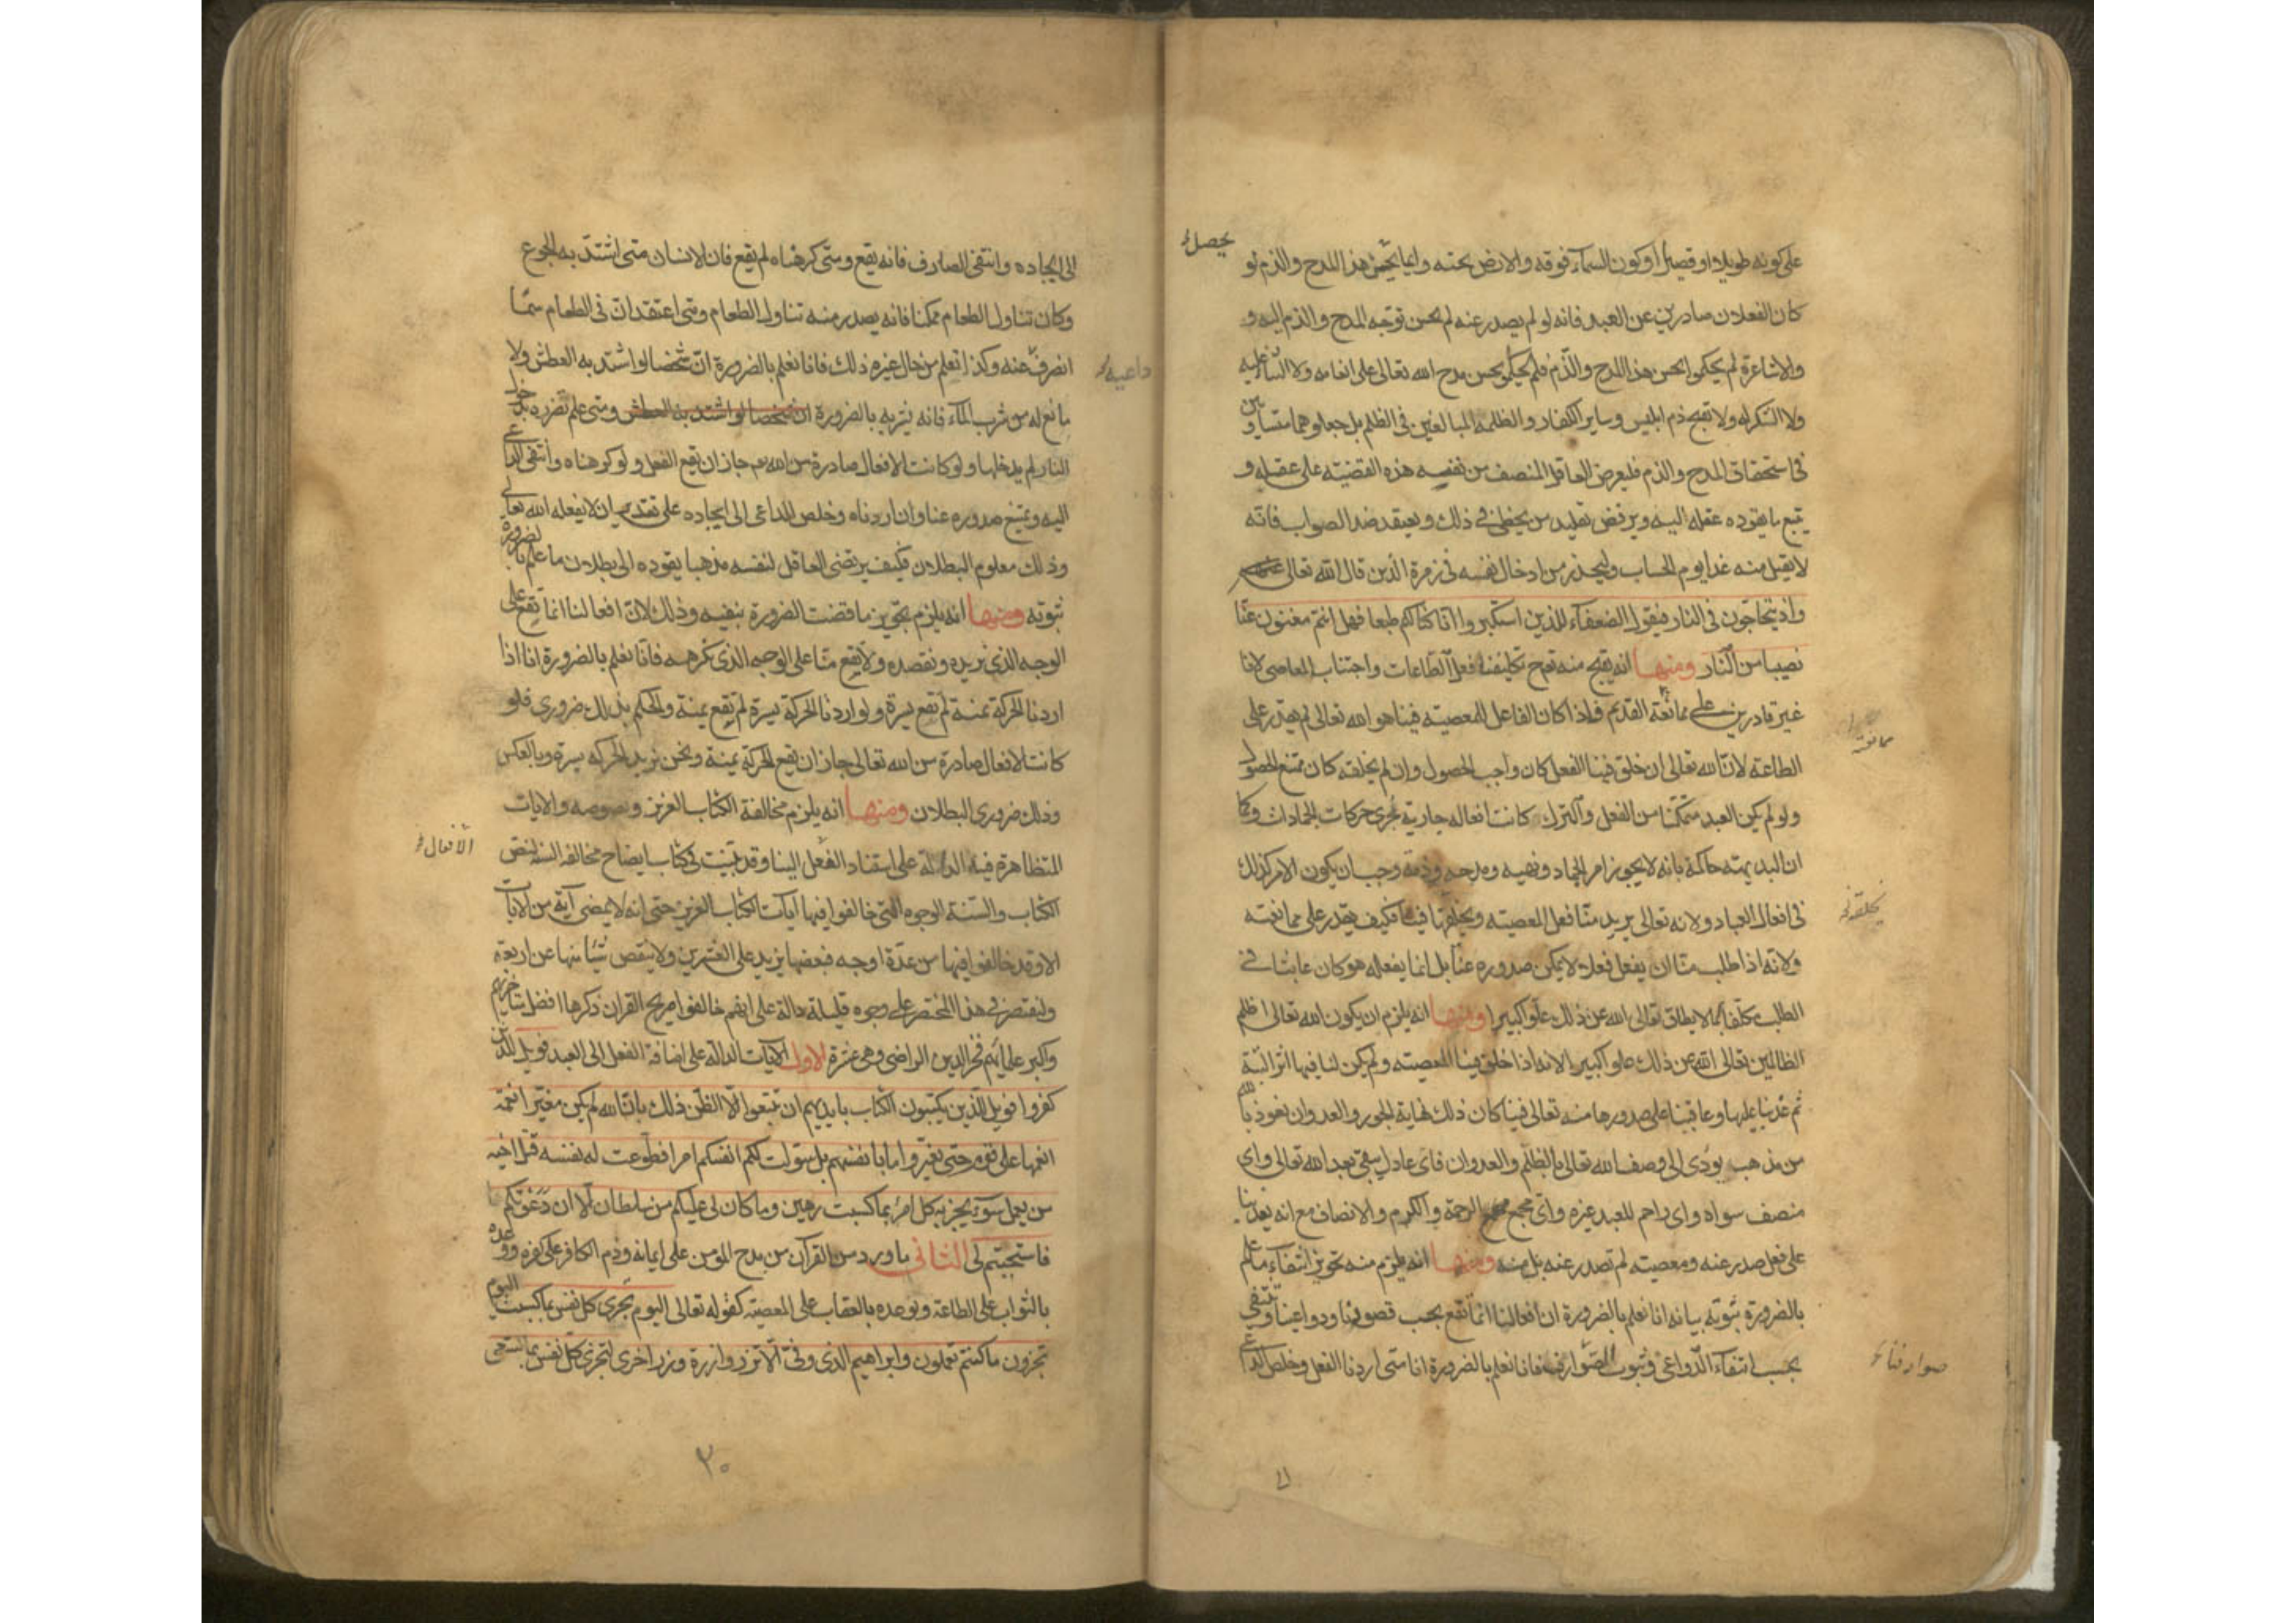 على كونه طويلا او قصيرا او كون السماء فوقه والارض تحته وانما يحسن هذا المدح والذم لو
يحصل
كان الفعلان صادرين عن العبد فانه لو لم يصدر عنه لم يحسن توجه المدح والذم اليه و
والاشاعرة لم يحكموا بحسن هذا المدح والذم فلم يحكموا بحسن مدح الله تعالى على انعامه ولا الثناء عليه
ولا الشكر له ولا تقبح ذم ابليس وساير الكفار والظلمة المبالغين في الظلم بل جعلوهما متساويين
في استحقاق المدح والذم فليعرض العاقل المنصف من نفسه هذه القضية على عقله و
يتبع ما يقوده عقله اليه ويرفض تقليد من يخطئ في ذلك ويعتقد ضد الصواب فانه
لا يقبل منه غدا يوم الحساب وليحذر من ادخال نفسه في زمرة الذين قال الله تعالى
واذ يتحاجون في النار فيقول الضعفاء للذين استكبروا انا كنا لكم طبعا فهل انتم مغنون عنا
نصيبا من النار ومنها انه يقبح منه تعالى ح تكليفنا فعل الطاعات واجتناب المعاصى لانا
غير قادرين على ممانعة القديم فاذا كان الفاعل للمعصيته فينا هو الله تعالى لم يقدر على
ممانعته
الطاعته لان الله تعالى ان خلق فينا الفعل كان واجب الحصول وان لم يخلقه كان ممتنع الحصول
ولو لم يكن العبد متمكنا من الفعل والترك كانت افعاله جارية مجرى حركات الجمادات وكما
ان البديهته حاكمة بانه لا يجوز امر الجماد ونهيه ومدحه وذمه وجب ان يكون الامر كذلك
في افعال العباد ولانه تعالى يريد منا فعل المعصيته ويخلقها فينا فكيف يقدر على ممانعته
يخلقه
ولانه اذا طلب منا ان يفعل فعلا لا يمكن صدوره عنا بل انما يفعله هو كان عابثا في
الطلب مكلفا بما لا يطاق تعالى الله عن ذلك علوا كبيرا ومنها انه يلزم ان يكون الله تعالى اظلم
الظالمين تعالى الله عن ذلك علوا كبيرا لانه اذا خلق فينا المعصيته ولم يكن لنا فيها اثر البتة
ثم عذبنا عليها وعاقبنا على صدورها منه تعالى فينا كان ذلك نهاية الجور والعدوان نعوذ بالله
من مذهب يؤدى الى وصف الله تعالى بالظلم والعدوان فاى عادل يبقى بعد الله تعالى واى
منصف سواه واى راحم للعبد غيره واى مجمع الرحمة والكرم والانصاف مع انه يعذبنا
على فعل صدر عنه ومعصيته لم تصدر عنه بل منه ومنها انه يلزم منه تجويز انتفاء ما علم
بالضرورة ثبوته بيانه انا نعلم بالضرورة ان افعالنا انما تقع بحسب قصودنا ودواعينا وتنتفى
بحسب انتفاء الدواعى وثبوت الصوارف فانا نعلم بالضرورة انا متى اردنا الفعل وخلص الداعى
صوارفنا
الى ايجاده وانتفى الصارف فانه يقع ومتى كرهناه لم يقع فان الانسان متى اشتد به الجوع
وكان تناول الطعام ممكنا فانه يصدر منه تناول الطعام ومتى اعتقد ان في الطعام سما
انصرف عنه وكذا نعلم من حال غيره ذلك فانا نعلم بالضرورة ان شخصا لو اشتد به العطش ولا
داعيه
مانع له من شرب الماء فانه يشربه بالضرورة ان شخصا لو اشتد به العطش ومتى علم تضرره بدخول
النار لم يدخلها ولو كانت الافعال صادرة من الله تعالى جاز ان يقع الفعل ولو كرهناه وانتفى الداعى
اليه ويمتنع صدوره عنا وان اردناه وخلص الداعى الى ايجاده على تقدير ان لا يفعله الله تعالى
وذلك معلوم البطلان فكيف يرتضى العاقل لنفسه مذهبا يقوده الى بطلان ما علم بالضرورة
ثبوته ومنها انه يلزم تجويز ما قضت الضرورة بنفيه وذلك لان افعالنا انما تقع على
الوجه الذى نريده ونقصده ولا يقع منا على الوجه الذى نكرهه فانا نعلم بالضرورة انا اذا
اردنا الحركة يمنة لم تقع يسرة ولو اردنا الحركة يسرة لم تقع يمنة والحكم بذلك ضرورى فلو
كانت الافعال صادرة من الله تعالى جاز ان تقع الحركة يمنة ونحن نريد الحركة يسرة وبالعكس
وذلك ضرورى البطلان ومنها انه يلزم مخالفة الكتاب العزيز ونصوصه والايات
المتظاهرة فيه الدالة على استناد الفعل الينا وقد بينت في كتاب ايضاح مخالفة السنة لنص
الافعال
الكتاب والسنة الوجوه التى خالفوا فيها ايات الكتاب العزيز حتى انه لا يمضى آية من الايات
الا وقد خالفوا فيها من عدة اوجه فبعضها يزيد على العشرين ولا ينقص شيئا منها عن اربعة
ولنقتصر في هذا المختصر على وجوه قليلة دالة على انهم خالفوا صريح القران ذكرها افضل متاخريهم
واكبر علمائهم فخر الدين الراضى وهى عشرة الاول الايات الدالة على اضافة الفعل الى العبد فويل للذين
كفروا فويل للذين يكتبون الكتاب بايديهم ان تتبعوا الا الظن ذلك بان الله لم يكن مغيرا نعمة
انعمها على قوم حتى يغيروا ما بانفسهم بل سولت لكم انفسكم امرا فطوعت له نفسه قتل اخيه
من يعمل سوء يجز به كل امرء بما كسبت رهين وما كان لى عليكم من سلطان الا ان دعوتكم
فاستجبتم لى الثانى ما ورد من القرآن من مدح المؤمن على ايمانه وذم الكافر على كفره ووعده
بالثواب على الطاعة وتوعده بالعقاب على المعصيته كقوله تعالى اليوم تجزى كل نفس بما كسبت اليوم
تجزون ما كنتم تعملون وابراهيم الذى وفى الا تزر وازرة وزر اخرى لتجزى كل نفس بما تسعى
٣٠